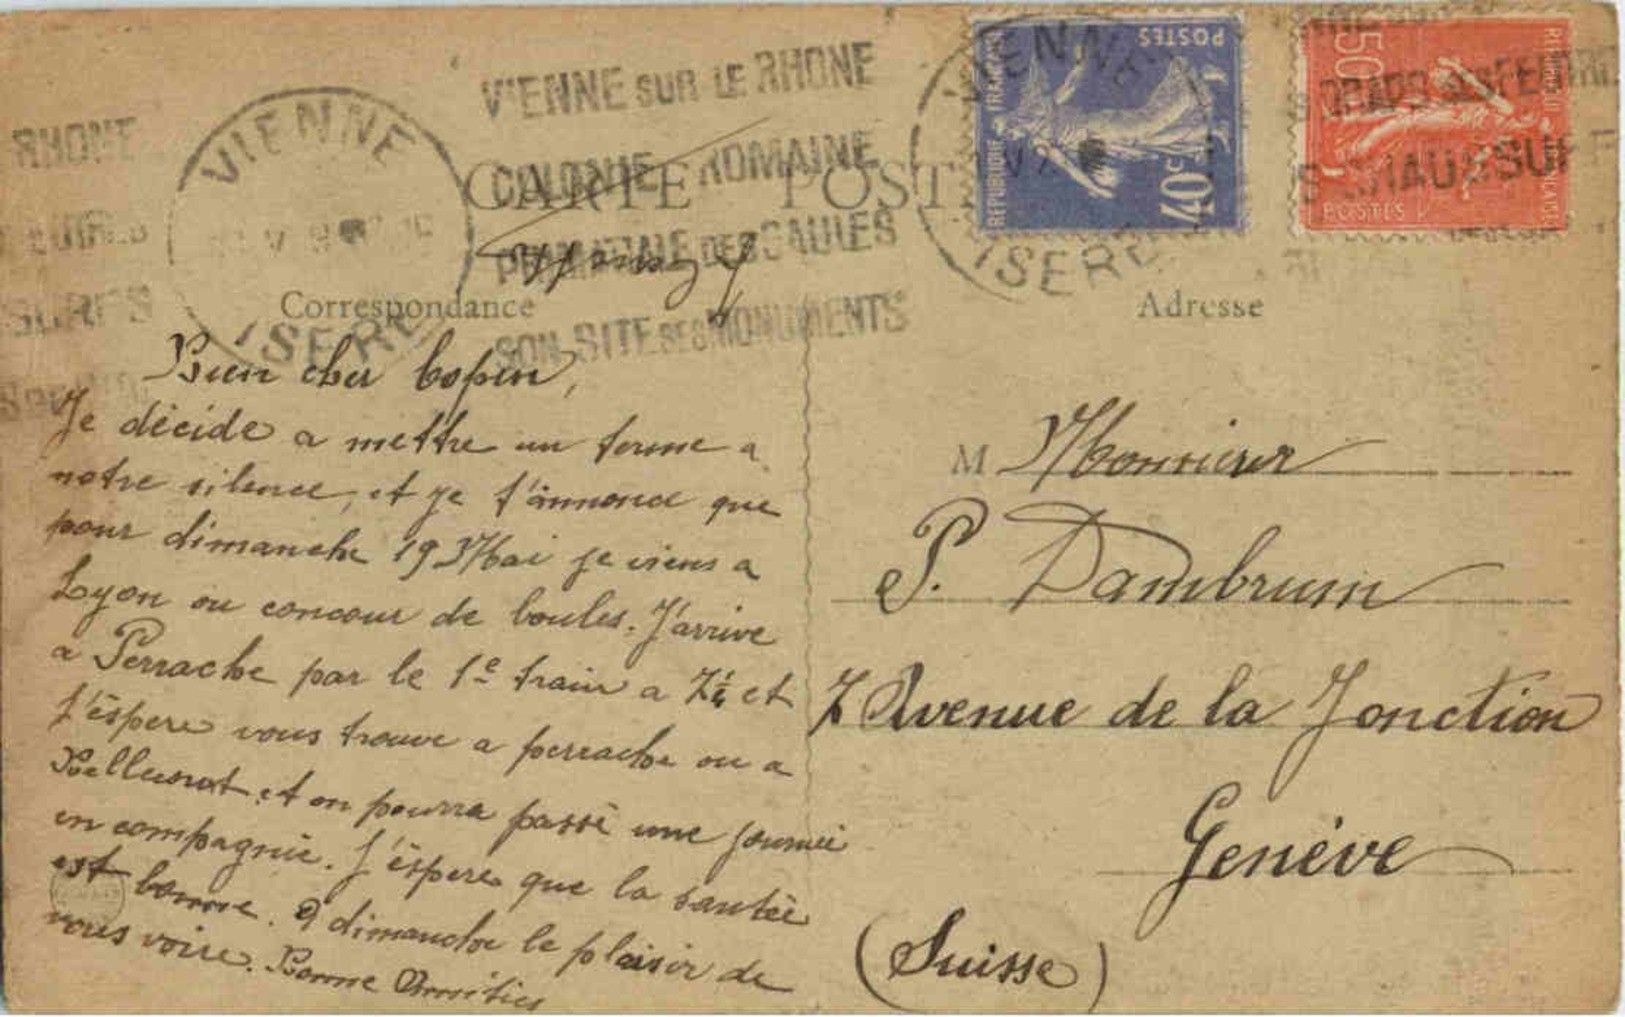 VIENNE SUR LE RHONE
COLONIE ROMAINE
PRIMATIALE DES GAULES
SON SITE SES MONUMENTS
VIENNE
ISERE
RHONE
CARTE POST
Correspondance
Bien cher Copin,
Je décide a mettre un terme a
notre silence, et je t'annonce que
pour dimanche 19 Mai je viens a
Lyon au concour de boules. J'arrive
a Perrache par le 1e train a 7 1/4 et
j'éspere vous trouve a perrache ou a
Bellecourt et on pourra passé une journée
en compagnie. J'éspere que la santée
est bonne. a dimanche le plaisir de
vous voire. Bonne Amitiés
VIENNE
ISERE
REPUBLIQUE FRANCAISE
POSTES
40c
50c
POSTES
Adresse
M Monsieur
P. Dambrun
7 Avenue de la Jonction
Genève
(Suisse)